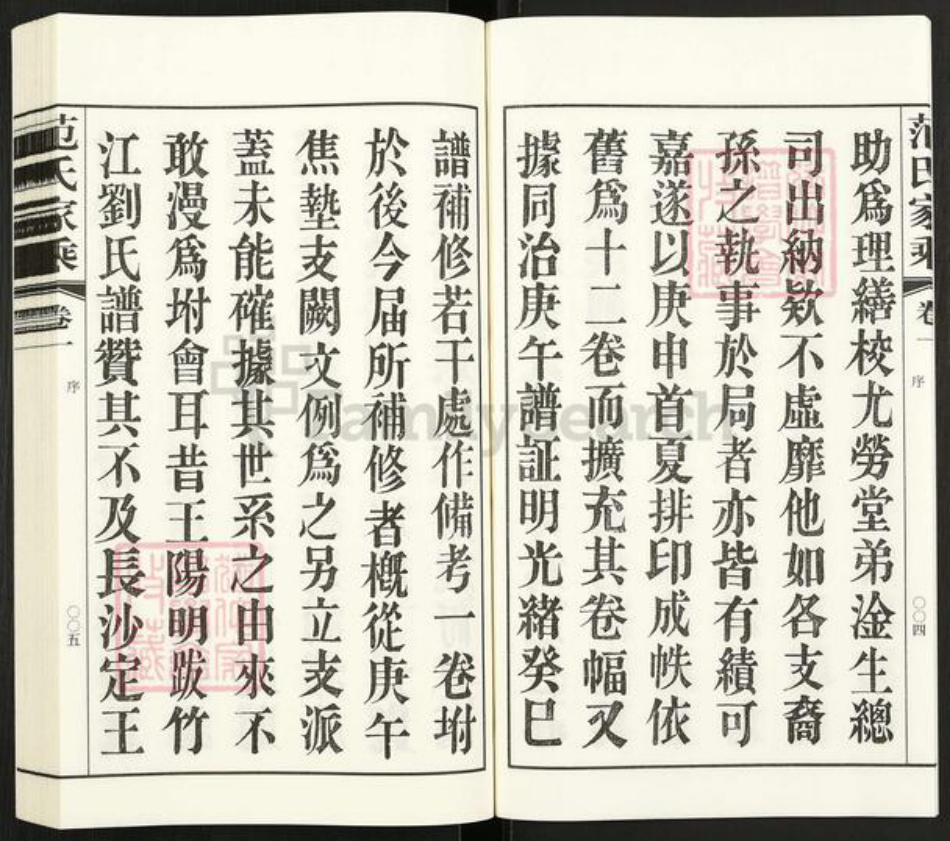 范氏家乘
卷一
序
〇〇四
助爲理繕校尤勞堂弟淦生總
司出納欵不虛靡他如各支裔
孫之執事於局者亦皆有績可
嘉遂以庚申首夏排印成帙依
舊爲十二卷而擴充其卷幅又
據同治庚午譜証明光緒癸巳
譜補修若干處作備考一卷坿
於後今届所補修者槪從庚午
焦墊支闕文例爲之另立支派
蓋未能確據其世系之由來不
敢漫爲坿會耳昔王陽明跋竹
江劉氏譜贊其不及長沙定王
范氏家乘
卷一
序
〇〇五
FamilySearch